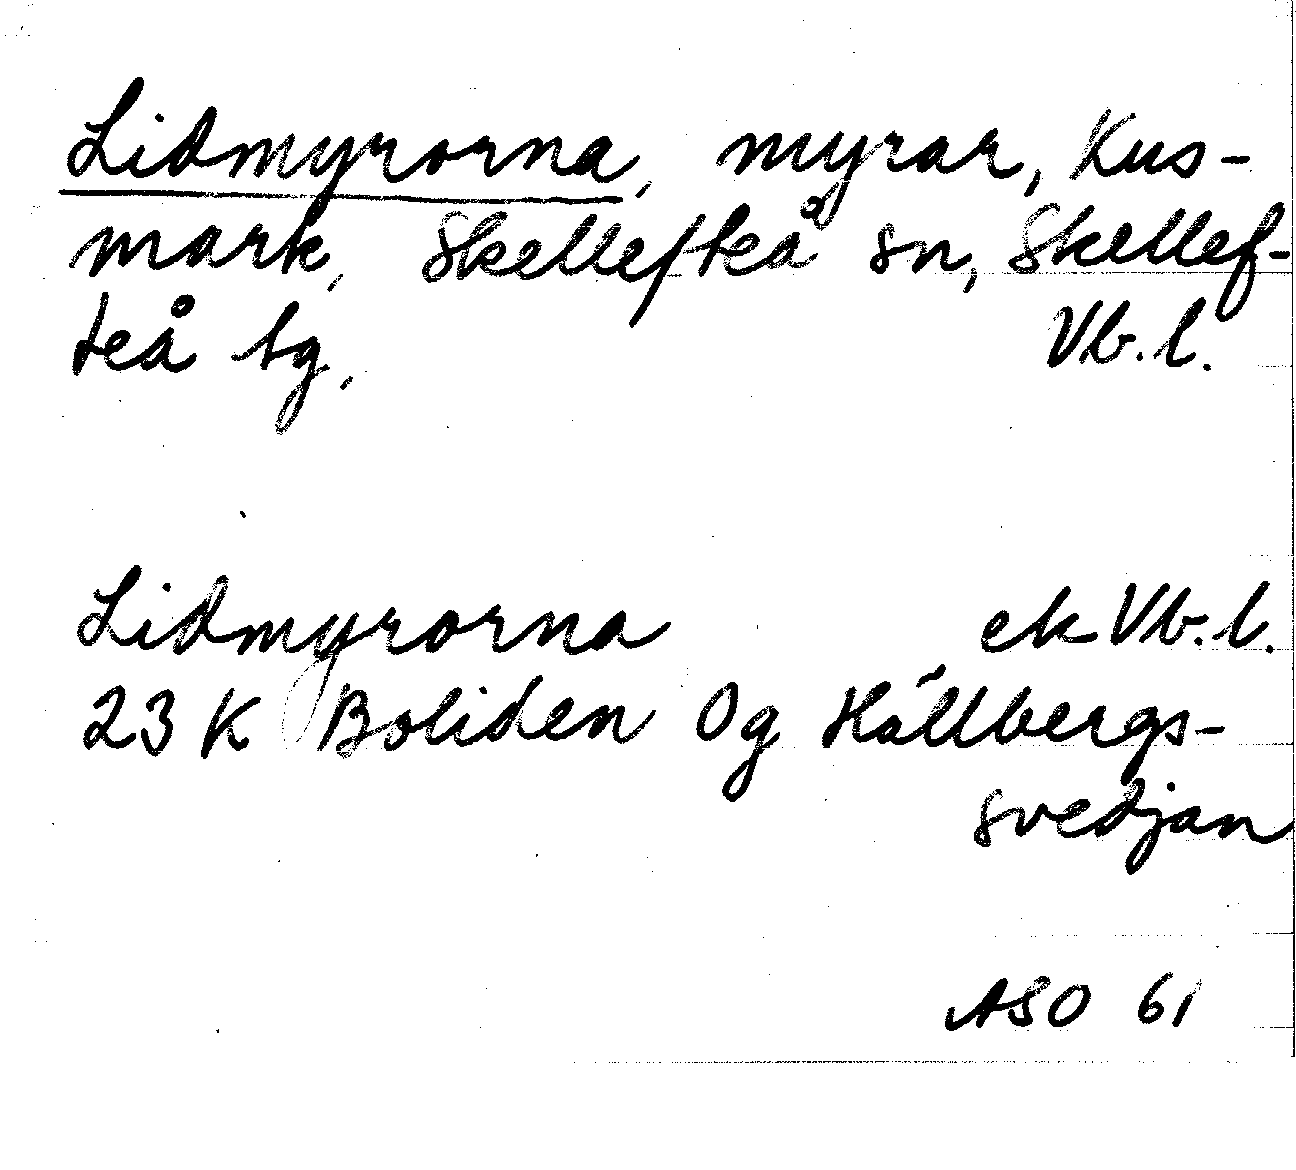 Lidmyrorna, myrar, Kus-
mark, Skellefteå sn, Skellef-
teå tg, Vb.l.
Lidmyrorna ek Vb.l.
23 K Boliden Og Hällbergs-
svedjan
ASO 61